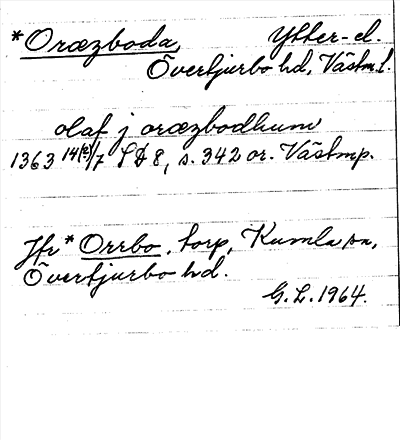 *Oræzboda, Ytter- el.
Övertjurbo hd, Västm.l.
olaf j oræzbodhum
1363 14(?)/7 SD 8, s. 342 or. Västmp.
Jfr *Orrbo, torp, Kumla sn,
Övertjurbo hd.
G.L. 1964.